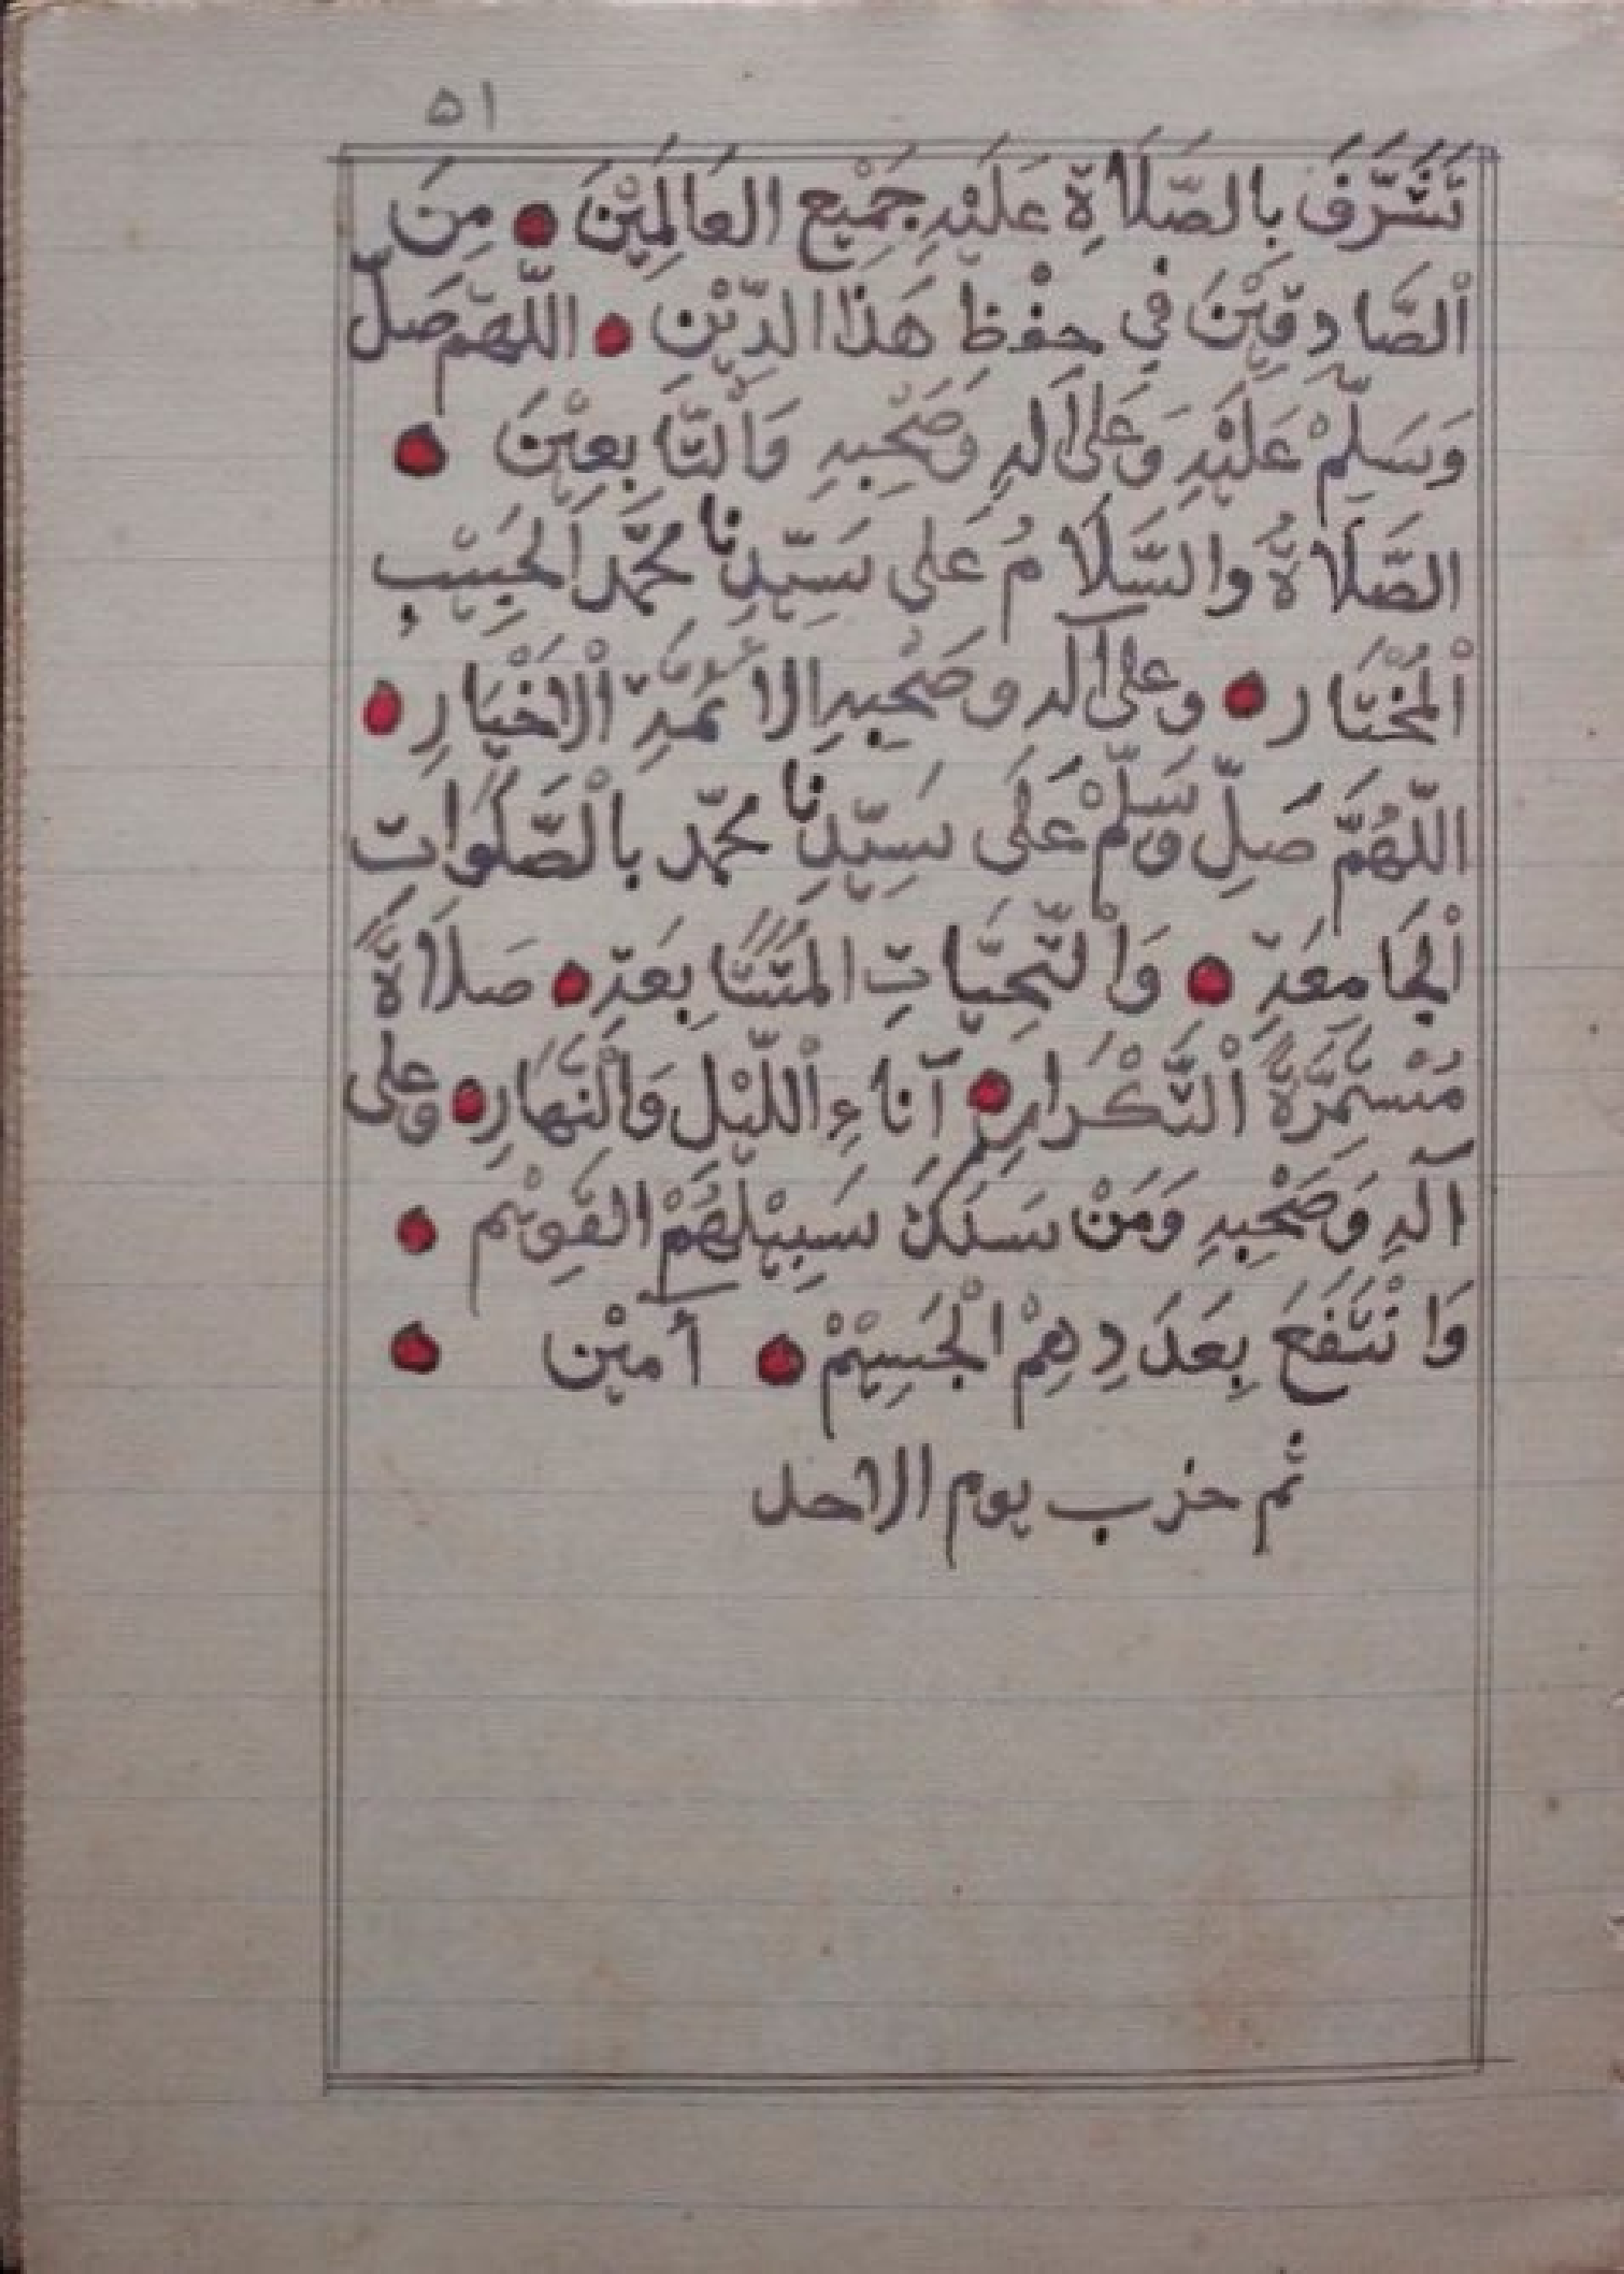 ٥١
تَشَرَّفَ بِالصَّلَاةِ عَلَيْهِ جَمِيْعِ العَالَمِيْنَ • مِنَ
اْلصَّادِقِيْنَ فِي حِفْظِ هَذَا الدِّيْنِ • اللّٰهُمَّ صَلِّ
وَسَلِّمْ عَلَيْهِ وَعَلَى آلِهِ وَصَحْبِهِ وَاْلتَّابِعِيْنَ •
الصَّلَاةُ وَالسَّلَامُ عَلَى سَيِّدِنَا مُحَمَّد الحَبِيْبِ
اْلمُخْتَار • وَعَلَى آلِهِ وَصَحْبِهِ الأَئِمَّةِ اْلاَخْيَارِ •
اللّٰهُمَّ صَلِّ وَسَلِّمْ عَلَى سَيِّدِنَا مُحَمَّد بِاْلصَّلَوَاتِ
اْلجَامِعَةِ • وَاْلتَّحِيَّاتِ المُتَتَابِعَةِ • صَلَاةً
مُسْتَمِرَّةَ اْلتَّكْرَارِ • آنَاءِ اْللَّيْلِ وَاْلنَّهَارِ • وَعَلَى
آلِهِ وَصَحْبِهِ وَمَنْ سَلَكَ سَبِيْلَهُمْ القَوِيْمِ •
وَانْتَفَعَ بِعَدَدِهِمْ اْلجَسِيْمْ • أَمِيْن •
ثم حزب يوم الاحد